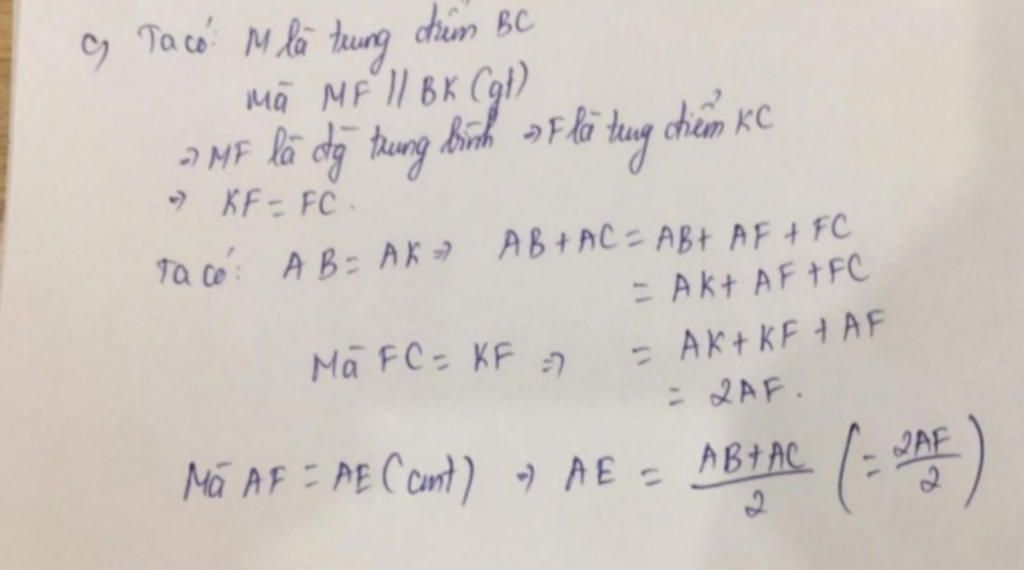 c, Ta có: M là trung điểm BC
mà MF // BK (gt)
=> MF là đg trung bình => F là tung điểm KC
=> KF = FC.
Ta có: AB = AK => AB + AC = AB + AF + FC
= AK + AF + FC
Mà FC = KF => = AK + KF + AF
= 2AF.
Mà AF = AE (cmt) => AE = \frac{AB+AC}{2} (= \frac{2AF}{2})